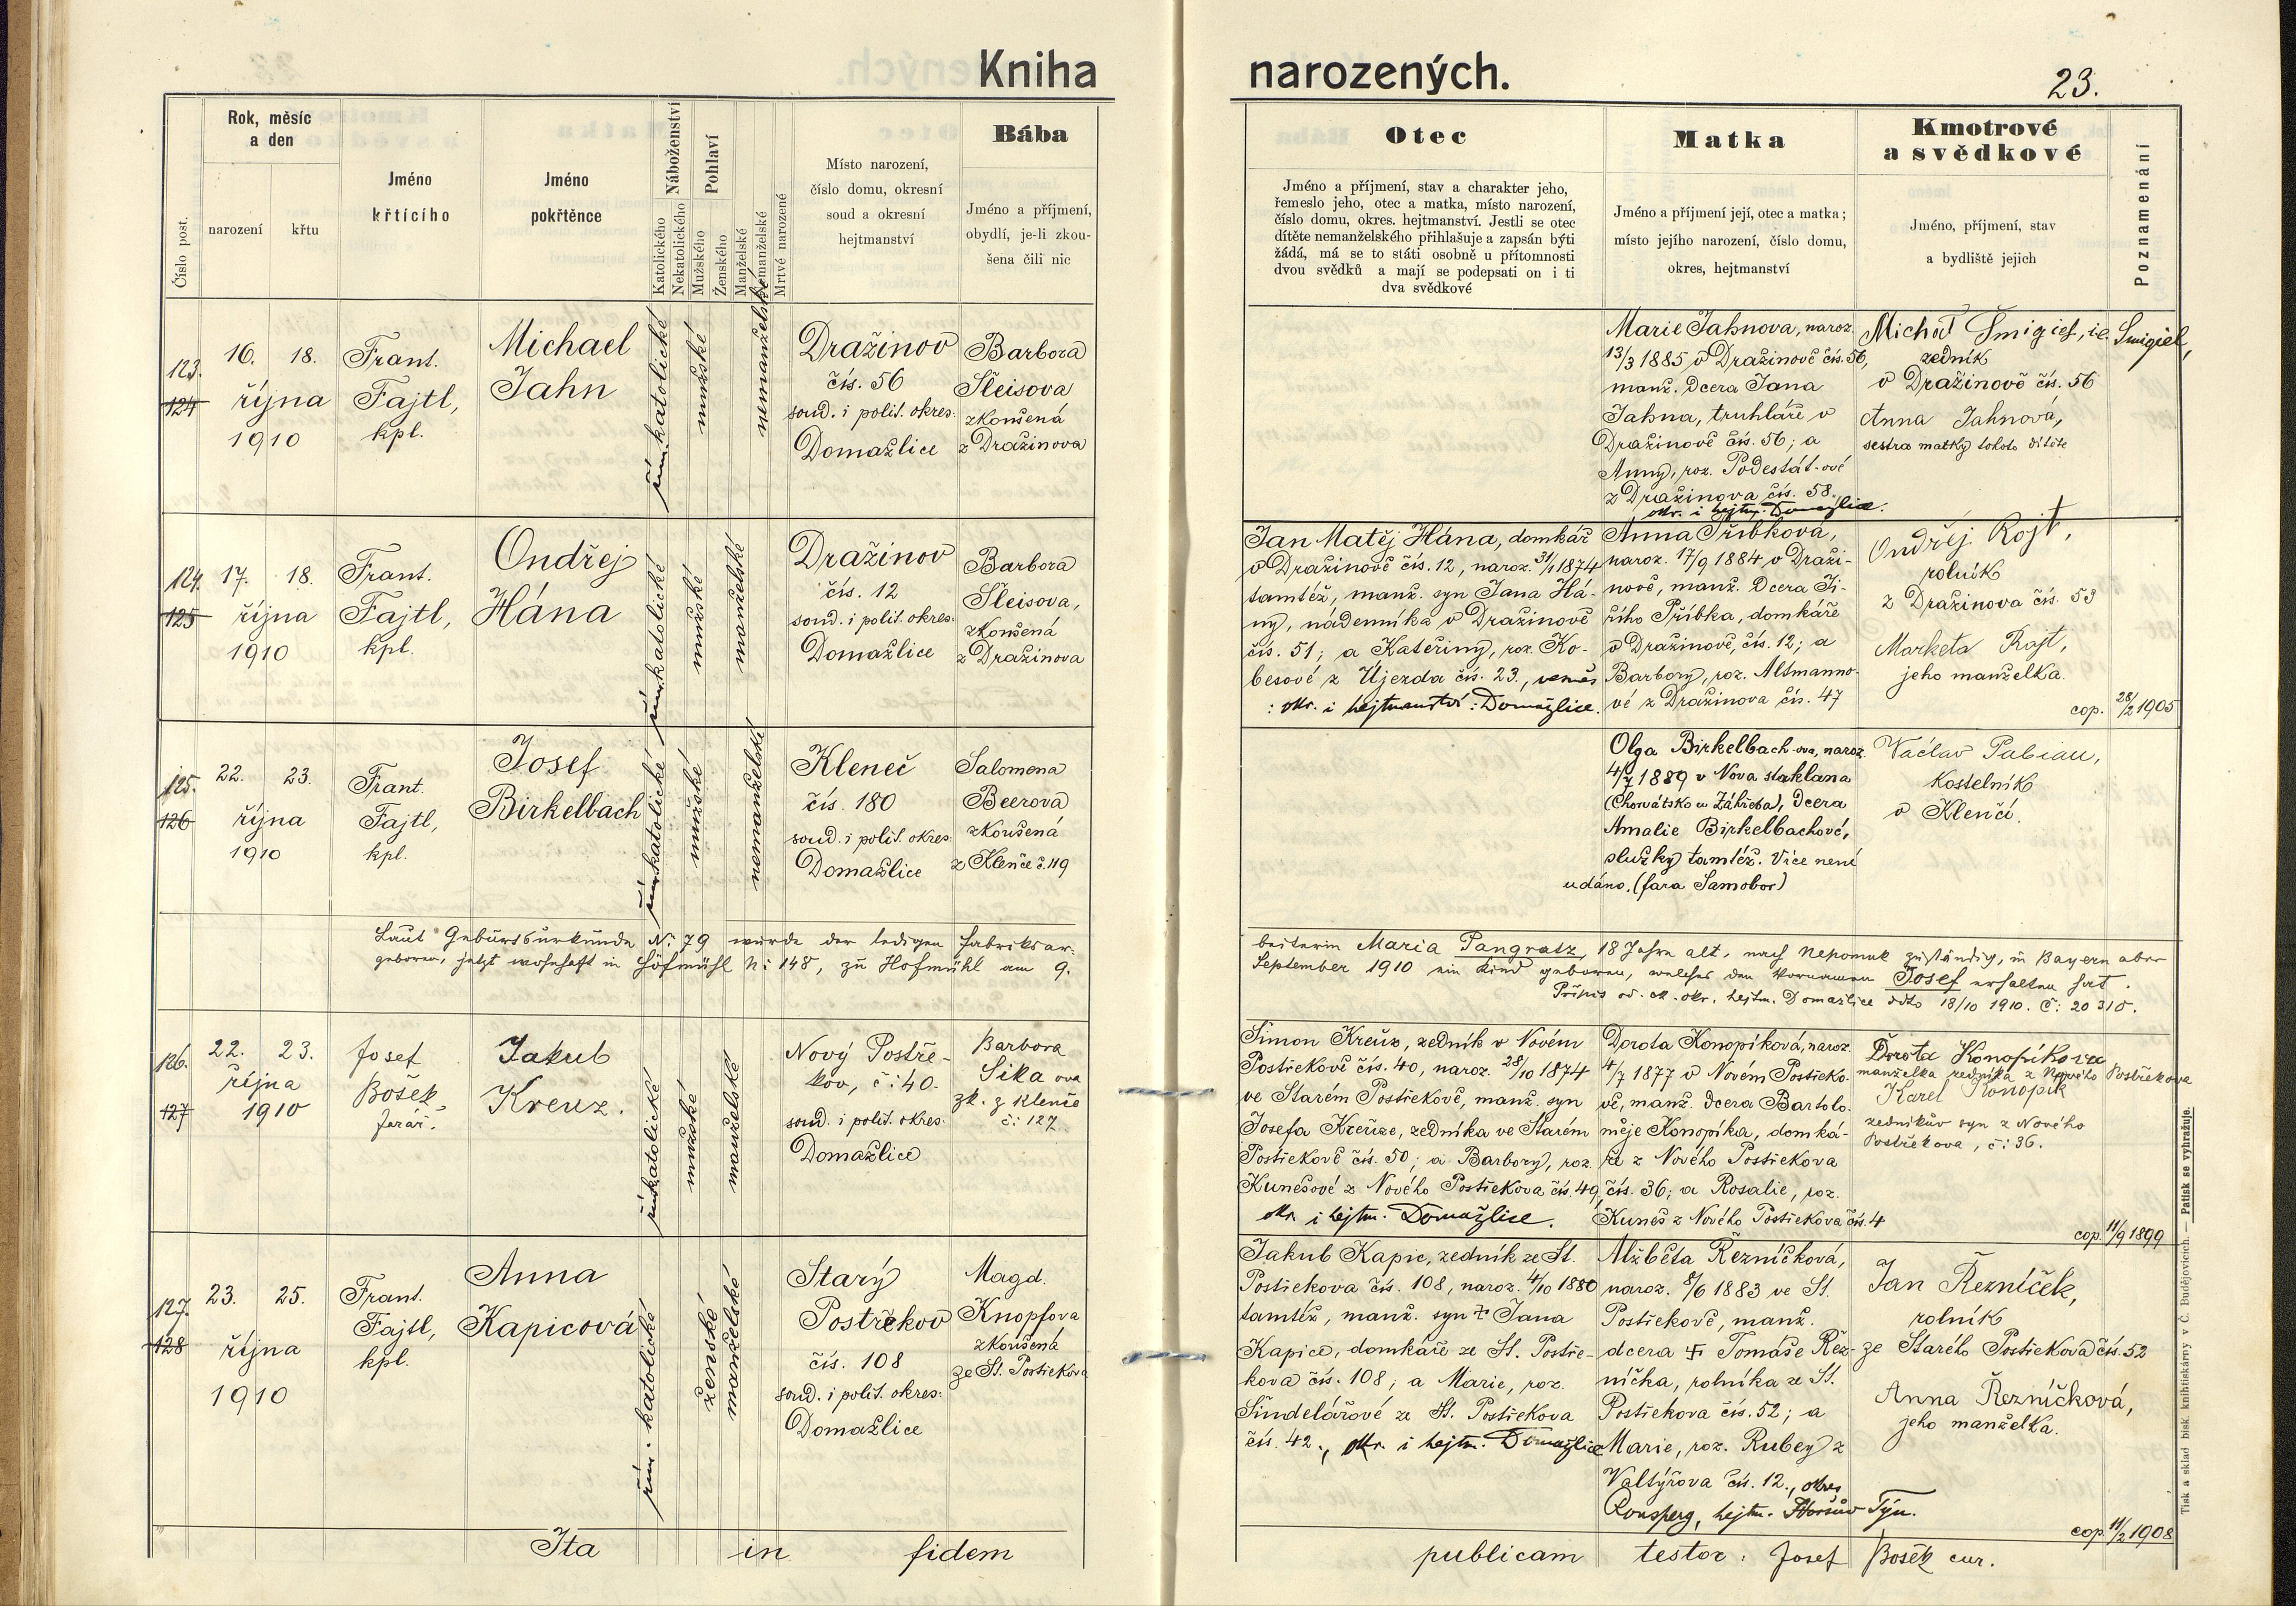 Kniha narozených.
23.
Číslo post.
Rok, měsíc
a den
narození
křtu
Jméno
křtícího
Jméno
pokřtěnce
Náboženství
Katolického
Nekatolického
Pohlaví
Mužského
Ženského
Manželské
Nemanželské
Mrtvé narozené
Místo narození,
číslo domu, okresní
soud a okresní
hejtmanství
Bába
Jméno a příjmení,
obydlí, je-li zkou-
šena čili nic
Otec
Jméno a příjmení, stav a charakter jeho,
řemeslo jeho, otec a matka, místo narození,
číslo domu, okres. hejtmanství. Jestli se otec
dítěte nemanželského přihlašuje a zapsán býti
žádá, má se to státi osobně u přítomnosti
dvou svědků a mají se podepsati on i ti
dva svědkové
Matka
Jméno a příjmení její, otec a matka;
místo jejího narození, číslo domu,
okres, hejtmanství
Kmotrové
a svědkové
Jméno, příjmení, stav
a bydliště jejich
Poznamenání
123.
124
16. 18.
října
1910
Frant.
Fajtl,
kpl.
Michael
Jahn
řím. katolické
mužské
nemanželské
Dražinov
čís. 56
soud. i polit. okres:
Domažlice
Barbora
Šleisova
zkoušená
z Dražinova
Marie Jahnova, naroz.
13/3 1885 v Dražinově čís. 56,
manž. dcera Jana
Jahna, truhláře v
Dražinově čís. 56; a
Anny, roz. Podestát-ové
z Dražinova čís. 58.
okr. i hejtm. Domažlice.
Michał Śmigiel, ie. Smigiel,
zedník
v Dražinově čís. 56
Anna Jahnová,
sestra matky tohoto dítěte
124.
125
17. 18.
října
1910
Frant.
Fajtl,
kpl.
Ondřej
Hána
řím. katolické
mužské
manželské
Dražinov
čís. 12
soud. i polit. okres:
Domažlice
Barbora
Šleisova,
zkoušená
z Dražinova
Jan Matěj Hána, domkář
v Dražinově čís. 12, naroz. 31/1 1874
tamtéž, manž. syn Jana Há-
ny, nádenníka v Dražinově
čís. 51; a Kateřiny, roz. Ko-
besové z Újezda čís. 23., vesměs
: okr. i hejtmanství: Domažlice.
Anna Příbková,
naroz. 17/9 1884 v Draži-
nově, manž. dcera Ji-
řího Příbka, domkáře
v Dražinově, čís. 12; a
Barbory, roz. Altmanno-
vé z Dražinova čís. 47
Ondřej Rojt,
rolník
z Dražinova čís. 53
Marketa Rajt,
jeho manželka.
cop. 28/2 1905
125.
126
22. 23.
října
1910
Frant.
Fajtl,
kpl.
Josef
Birkelbach
řím. katolické
mužské
nemanželské
Kleneč
čís. 180
soud. i polit. okres:
Domažlice
Salomena
Beerova
zkoušená
z Klenče č. 119
Olga Birkelbach-ova, naroz.
4/7 1889 v Nova staklana
(Chorvátsko u Záhřeba), dcera
Amalie Birkelbachové,
služky tamtéž. Více není
udáno. (fara Samobor)
Václav Pabian,
kostelník
v Klenčí.
Laut Geburtsurkunde No. 79 wurde der ledigen Fabriksar-
beiterin Maria Pangratz, 18 Jahre alt, nach Nepomuk zuständig, in Bayern aber
geboren, jetzt wohnhaft in Höfmühl N: 148, zu Hofmühl am 9.
September 1910 ein Kind geboren, welches den Vornamen Josef erhalten hat.
Přípis od c.k. okr. hejtm. Domažlice ddto 18/10 1910. č: 20310.
126.
127
22. 23.
října
1910
Josef
Bošek,
farář.
Jakub
Kreuz.
řím. katolické
mužské
manželské
Nový Postře-
kov, č: 40.
soud. i polit. okres:
Domažlice
Barbora
Sika ova
zk. z Klenče
č: 127
Šimon Kreuz, zedník v Novém
Postřekově čís. 40, naroz. 28/10 1874
ve Starém Postřekově, manž. syn
Josefa Kreuze, zedníka ve Starém
Postřekově čís. 50; a Barbory, roz.
Kunešové z Nového Postřekova čís. 49,
okr. i hejtm. Domažlice.
Dorota Konopíková, naroz.
4/7 1877 v Novém Postřeko-
vě, manž. dcera Bartolo-
měje Konopíka, domká-
ře z Nového Postřekova
čís. 36; a Rosalie, roz.
Kuneš z Nového Postřekova čís. 4
Dorota Konopíkova
manželka zedníka z Nového Postřekova
Karel Konopík
zedníkův syn z Nového
Postřekova, č: 36.
cop. 11/9 1899
127.
128
23. 25.
října
1910
Frant.
Fajtl,
kpl.
Anna
Kapicová
řím. katolické
ženské
manželské
Starý
Postřekov
čís. 108
soud. i polit. okres:
Domažlice
Magd.
Knopfova
zkoušená
ze St. Postřekova
Jakub Kapic, zedník ze St.
Postřekova čís. 108, naroz. 4/10 1880
tamtéž, manž. syn † Jana
Kapice, domkáře ze St. Postře-
kova čís. 108; a Marie, roz.
Šindelářové ze St. Postřekova
čís. 42., okr. i hejtm. Domažlice
Alžběta Řezníčková,
naroz. 8/6 1883 ve St.
Postřekově, manž.
dcera † Tomáše Řez-
níčka, rolníka ze St.
Postřekova čís. 52; a
Marie, roz. Rubey z
Valtýřova čís. 12., okres
Ronsperg, hejtm. Horšův Týn.
Jan Řezníček,
rolník
ze Starého Postřekova čís. 52
Anna Řezníčková,
jeho manželka.
cop. 11/2 1908
Ita in fidem publicam testor: Josef Bošek cur.
Tisk a sklad bisk. knihtiskárny v Č. Budějovicích. — Patisk se vyhražuje.